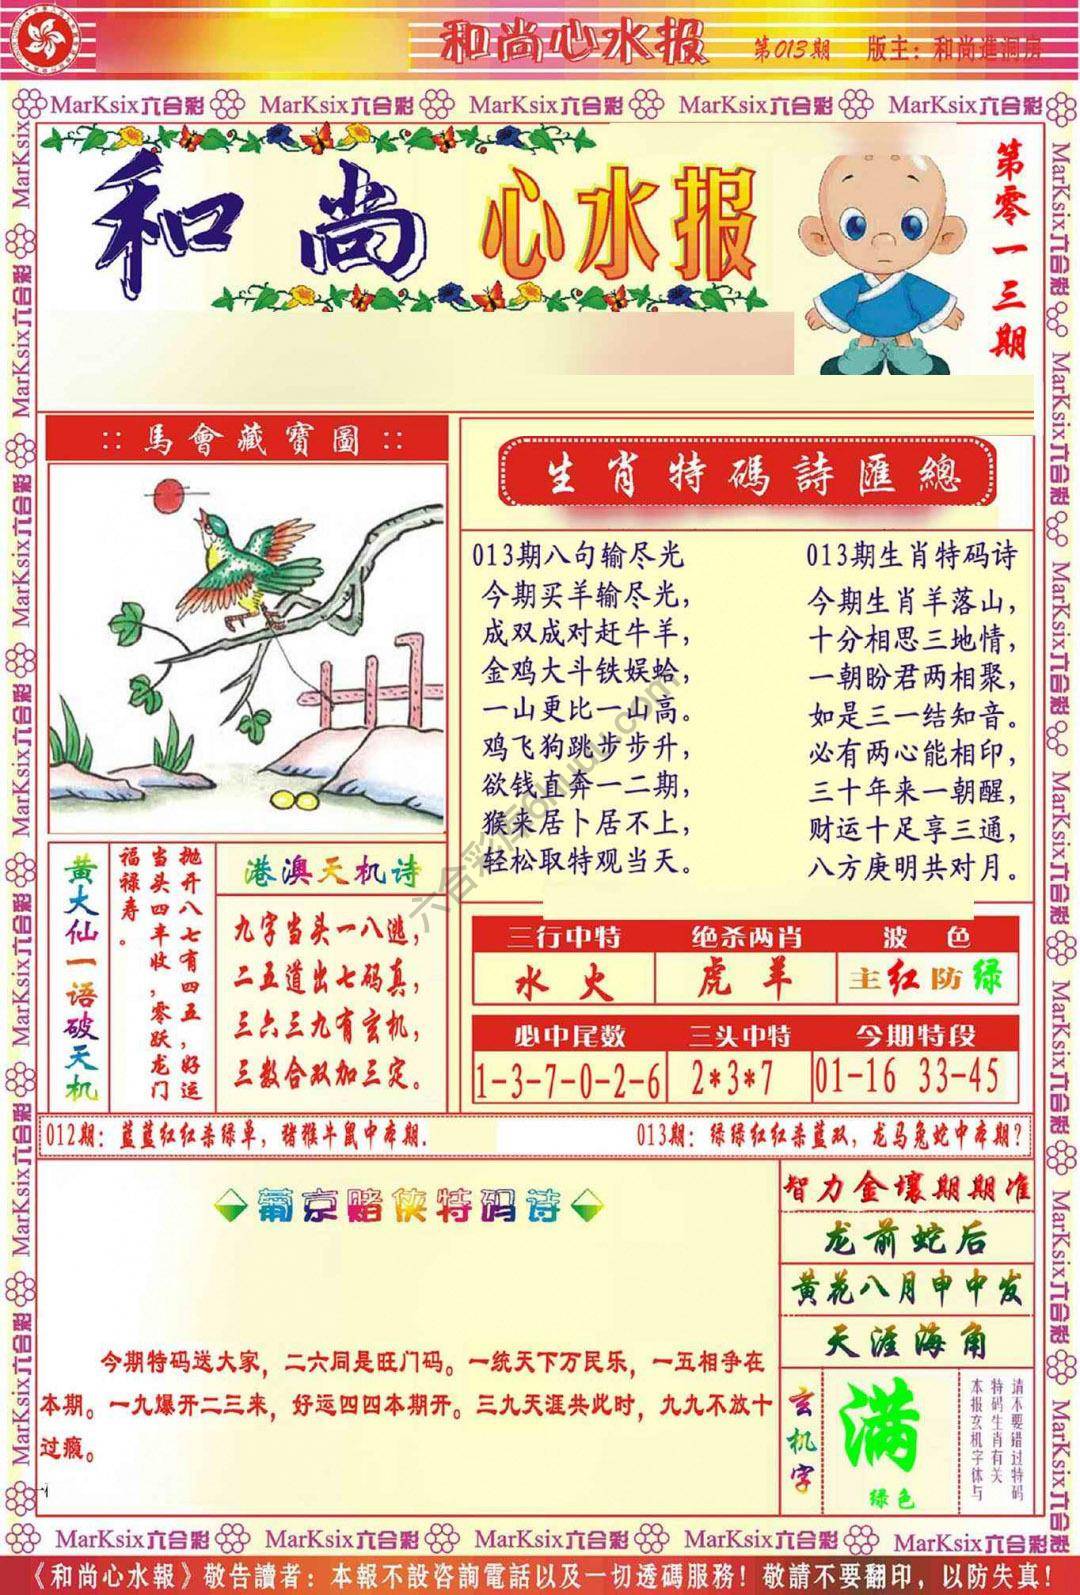 和尚心水报
第013期
版主：和尚進洞房
MarKsix六合彩 MarKsix六合彩 MarKsix六合彩 MarKsix六合彩 MarKsix六合彩
和尚心水报
第零一三期
馬會藏寶圖
生肖特碼詩匯總
013期八句输尽光
今期买羊输尽光，
成双成对赶牛羊，
金鸡大斗铁蜈蛤，
一山更比一山高。
鸡飞狗跳步步升，
欲钱直奔一二期，
猴来居卜居不上，
轻松取特观当天。
013期生肖特码诗
今期生肖羊落山，
十分相思三地情，
一朝盼君两相聚，
如是三一结知音。
必有两心能相印，
三十年来一朝醒，
财运十足享三通，
八方庚明共对月。
黄大仙一语破天机
抛开八七有四五，好运
当头四丰收，零妖龙门
福禄寿。
港澳天机诗
九字当头一八逃，
二五道出七码真，
三六三九有玄机，
三数合双加三定。
三行中特 绝杀两肖 波色
水火 虎羊 主红防绿
必中尾数 三头中特 今期特段
1-3-7-0-2-6 2*3*7 01-16 33-45
012期：蓝蓝红红杀绿单，猪猴牛鼠中本期.
013期：绿绿红红杀蓝双，龙马兔蛇中本期？
葡京赌侠特码诗
今期特码送大家，二六同是旺门码。一统天下万民乐，一五相争在
本期。一九爆开二三来，好运四四本期开。三九天涯共此时，九九不放十
过瘾。
智力金壤期期准
龙前蛇后
黄花八月申中发
天涯海角
玄机字
满
绿色
请不要错过特码
特码生肖有关
本报玄机字体与
六合彩库6huuk.com
MarKsix六合彩 MarKsix六合彩 MarKsix六合彩 MarKsix六合彩 MarKsix六合彩
《和尚心水報》敬告讀者：本報不設咨詢電話以及一切透碼服務！敬請不要翻印，以防失真！